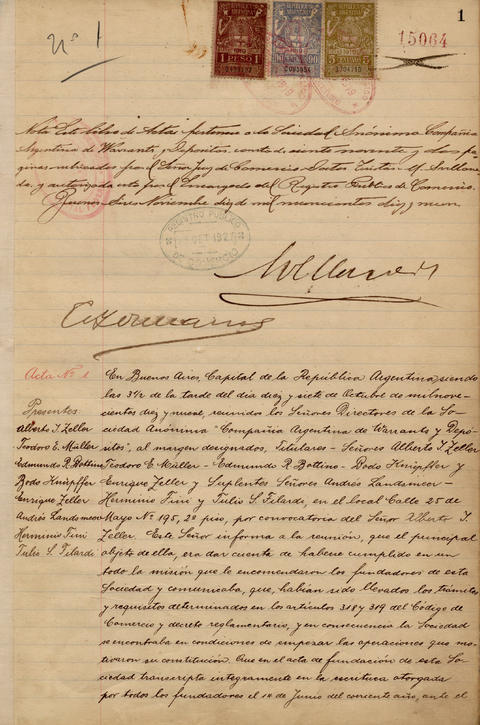 1
Nº 1
15064
1 PESO 1
90 90
5 5
Nota Este libro de Actas pertenece a la Sociedad Anónima Compañia
Argentina de Warrants y Depósitos, consta de ciento noventa y dos pá-
ginas rubricadas por el Señor Juez de Comercio Doctor
da, y autorizada esta por el Encargado del Registro Público de Comercio.
Buenos Aires Noviembre diez de mil novecientos diez y nueve
REGISTRO PUBLICO
DE COMERCIO
Acta Nº 1
En Buenos Aires Capital de la República Argentina, siendo
las 3½ de la tarde del dia diez y siete de Octubre de mil nove-
cientos diez y nueve, reunidos los Señores Directores de la So-
ciedad Anónima "Compañia Argentina de Warrants y Depó-
sitos", al margen designados, Titulares - Señores Alberto I. Zeller
Teodoro E. Müller - Edmundo R. Bottino - Bodo Knüpffer y
Enrique Zeller y Suplentes Señores Andrés Landameor -
Herminio Fini y Tulis S. Filardi, en el local Calle 25 de
Mayo Nº 195, 2º piso, por convocatoria del Señor Alberto I.
Zeller. Este Señor informa a la reunión, que el principal
objeto de ella, era dar cuenta de haberse cumplido en un
todo la misión que le encomendaron los fundadores de esta
Sociedad y comunicaba, que, habían sido llevados los trámites
y requisitos determinados en los artículos 318 y 319 del Código de
Comercio y decreto reglamentario, y en consecuencia la Sociedad
se encontraba en condiciones de empezar las operaciones que mo-
tivaron su constitución. Que en el acta de fundación de esta So-
ciedad transcripta integramente en la escritura otorgada
por todos los fundadores el 14 de Junio del corriente año, ante el
Presentes:
Alberto I. Zeller
Teodoro E. Müller
Edmundo R. Bottino
Bodo Knüpffer
Enrique Zeller
Andrés Landameor
Herminio Fini
Tulis S. Filardi